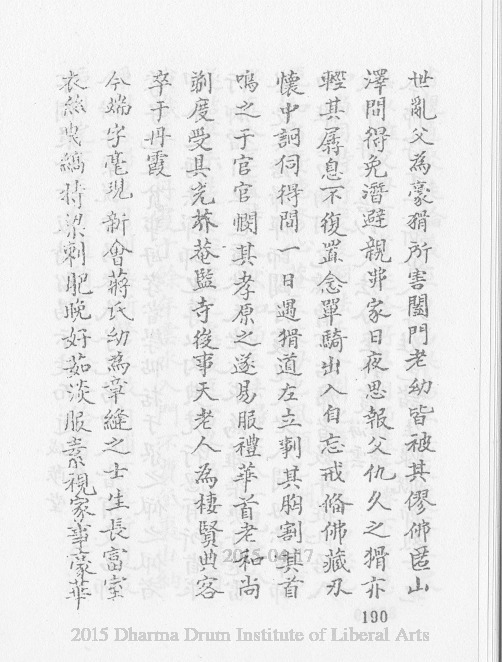 世亂父為豪猾所害闔門老幼皆被其僇佛匿山
澤間得免潛避親串家日夜思報父仇久之猾亦
輕其孱息不復置念單騎出入自忘戒俻佛藏刃
懷中詗伺得間一日遇猾道左立剚其胸割其首
鳴之于官官憫其孝原之遂易服禮華首老和尚
剃度受具充芥菴監寺後事天老人為棲賢典客
卒于丹霞
今端字毫現新會蔣氏幼為章縫之士生長富室
衣絲曳縞持粱刺肥晚好茹淡服素視家事豪華
2015-06-17
190
2015 Dharma Drum Institute of Liberal Arts